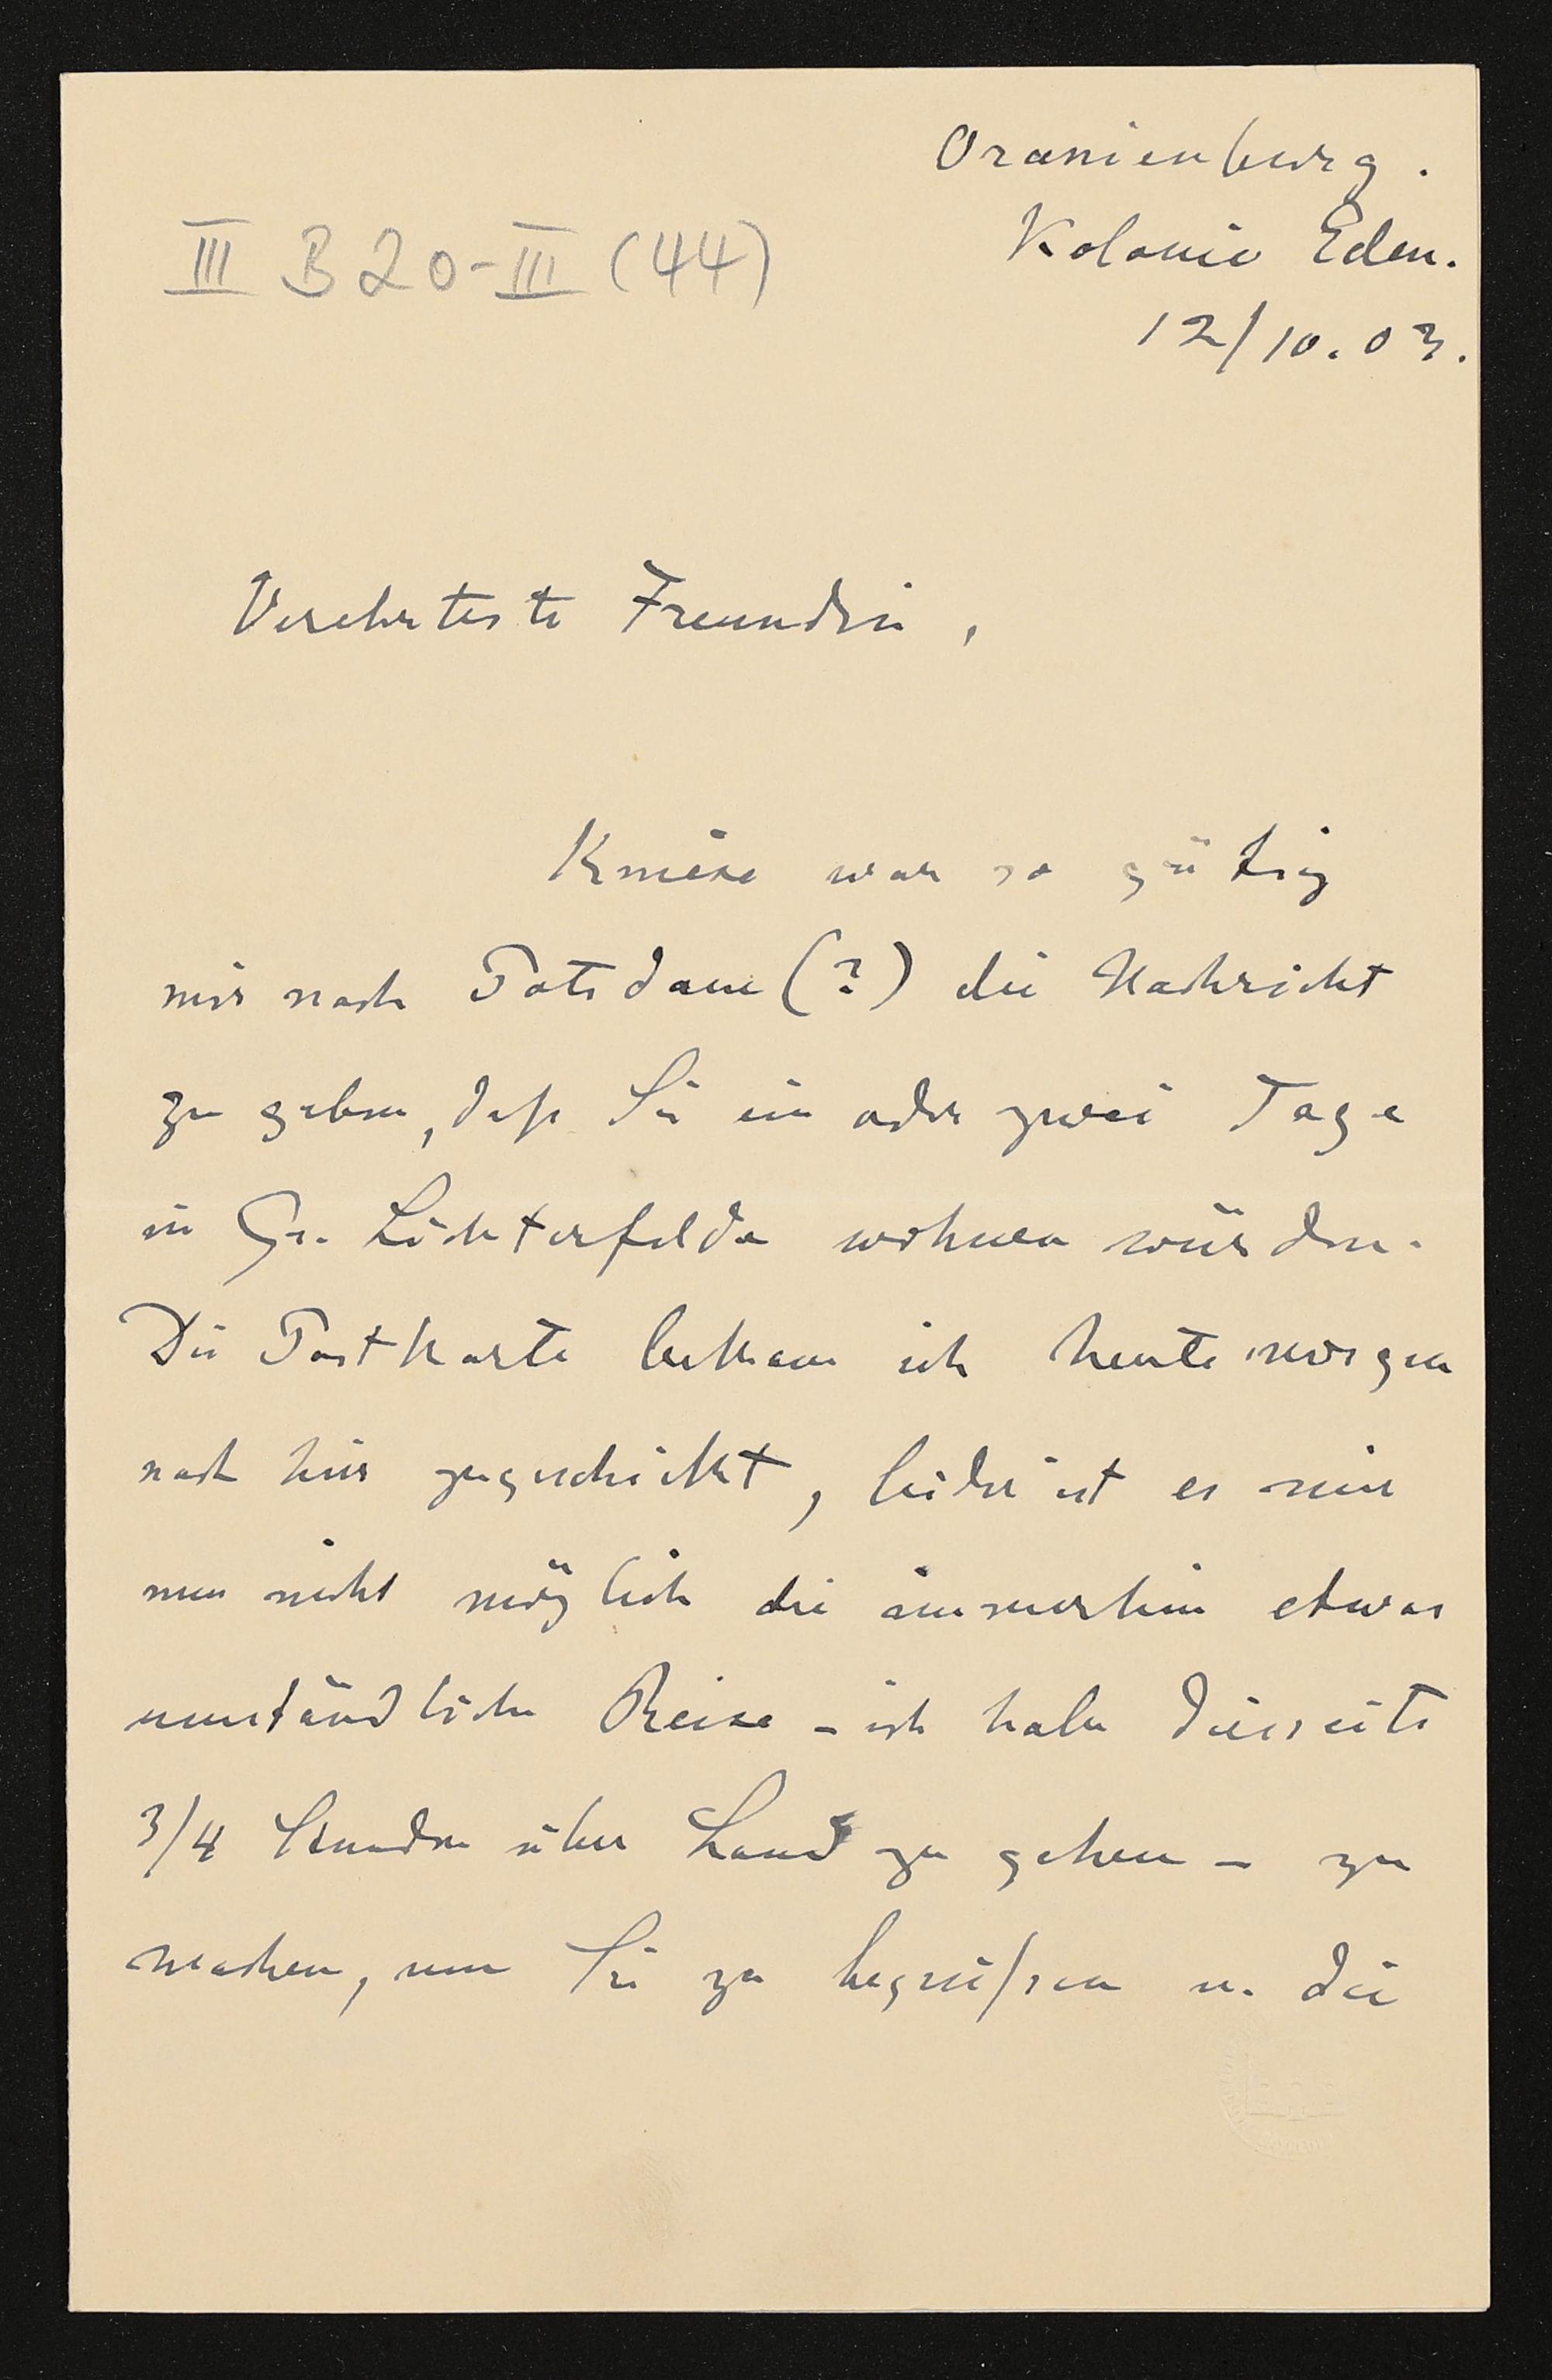 Oranienburg.
Kolonie Eden.
12/10.03.
III B 20-III (44)
Verehrteste Freundin,
Kniese war so gütig
mir nach Potsdam (?) die Nachricht
zu geben, daß Sie ein oder zwei Tage
in Gr. Lichterfelde wohnen würden.
Die Postkarte bekam ich heute morgen
nach hier zugeschickt, leider ist es mir
nun nicht möglich die immerhin etwas
umständliche Reise – ich habe dieserseits
3/4 Stunden über Land zu gehen – zu
machen, um Sie zu begrüßen u. die